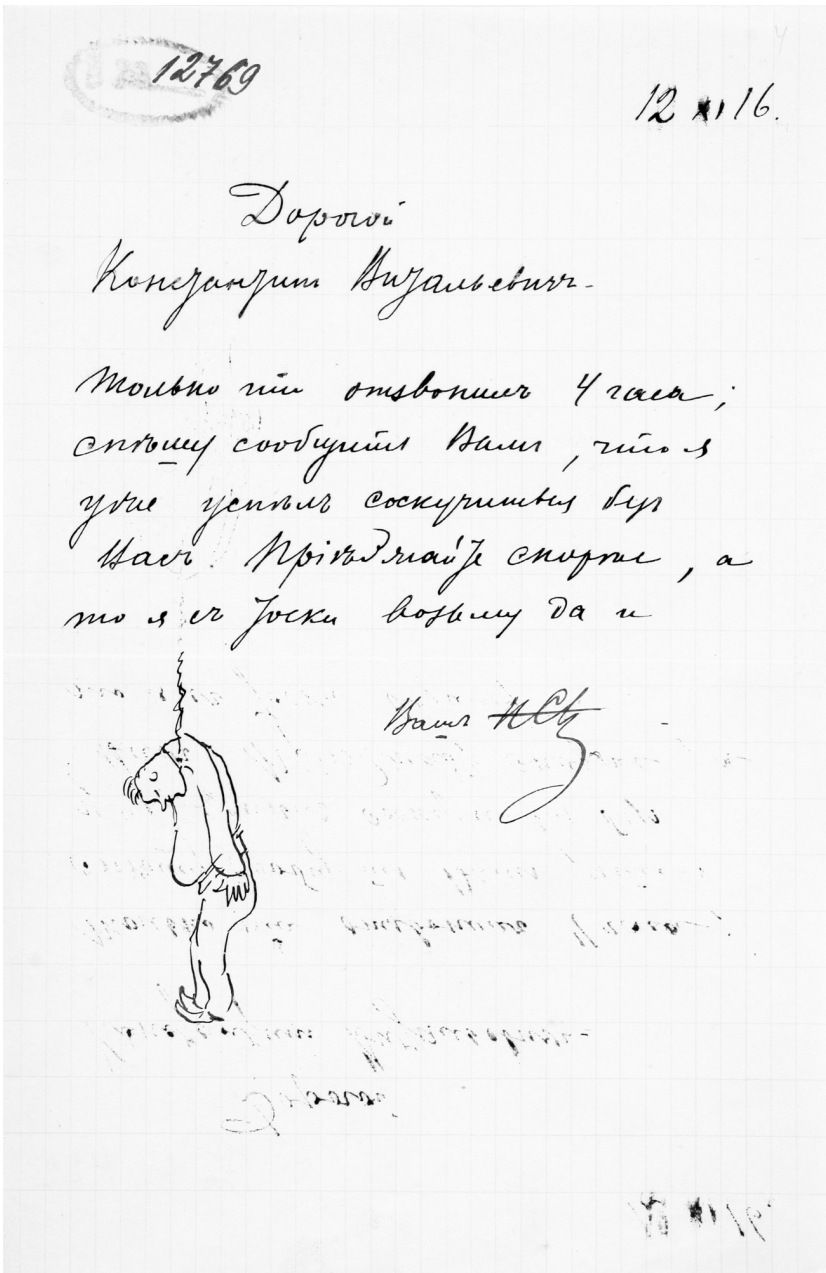 12769
12 XI 16.
Дорогой
Константин Витальевичъ-
Только что отзвонилъ 4 часа;
спѣшу сообщить Вамъ, что я
уже успѣлъ соскучиться безъ
Васъ. Пріѣзжайте скорѣе, а
то я съ тоски возьму да и
Вашъ